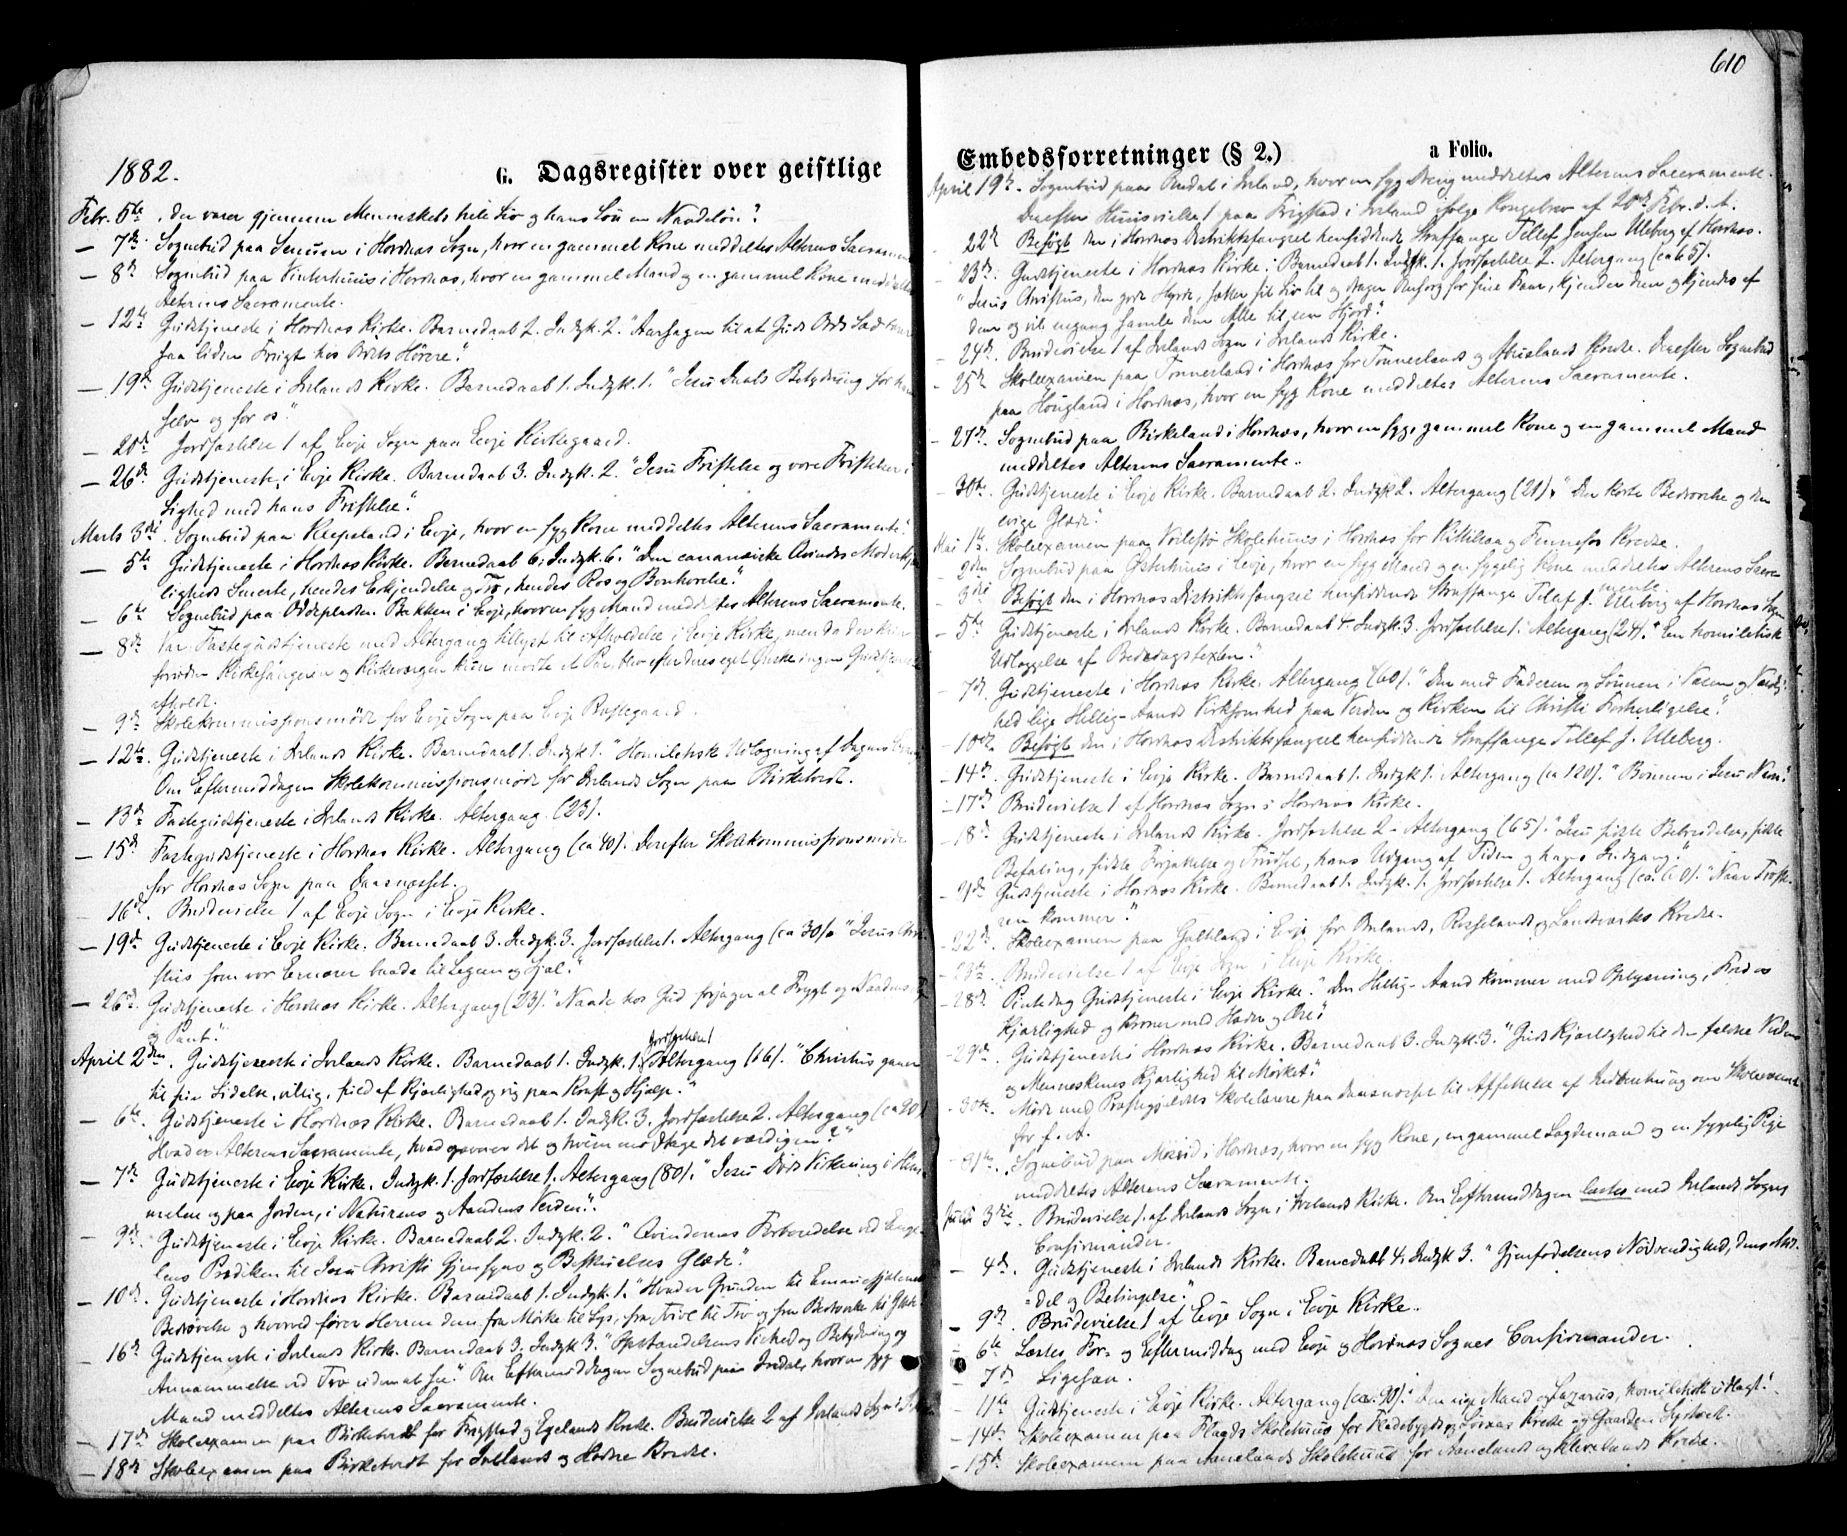 1882.
G. Dagsregister over geistlige
Febr. 5te der varer gjennem Menneskets hele Liv og hans Løn en Naadeløn."
— 7de Sognebud paa Senum i Hornnæs Sogn, hvor en gammel Kone meddeltes Alterens Sacramente
— 8de Sognebud paa Vinterhuus i Hornnæs, hvor en gammel Mand og en gammel Kone meddeltes
Alterens Sacramente.
— 12te Gudstjeneste i Hornnæs Kirke. Barnedaab 2. Indgk. 2. "Aarsagen til at Guds Ords Sæd bærer
saa liden Frugt hos Ordets Hørere."
— 19de Gudstjeneste i Iveland Kirke. Barnedaab 1. Indgk. 1. "Jesu Daabs Betydning for ham
selv og for os."
— 20de Jordfæstelse 1 af Evje Sogn paa Evje Kirkegaard.
— 26de Gudstjeneste i Evje Kirke. Barnedaab 3. Indgk. 2. "Jesu Fristelse og vore Fristelser i
Lighed med hans Fristelse."
Marts 3die Sognebud paa Kaapeland i Evje, hvor en syg Kone meddeltes Alterens Sacramente.
— 5te Gudstjeneste i Hornnæs Kirke. Barnedaab 6. Indgk. 6. "Den cananæiske Qvindes Moderkjær
ligheds Smerte, hendes Erkjendelse og Tro, hendes Ros og Bønhørelse."
— 6te Sognebud paa Oddepladsen Bakken i Evje, hvor en syg Mand meddeltes Alterens Sacramente.
— 8de Var Fastegudstjeneste med Altergang tillyst til Afholdelse i Evje Kirke, men da der kun
foruden Kirkesangeren og Kirkeværgen kun mødte et Par, blev efter deres eget Ønske ingen Gudstjeneste
afholdt.
— 9de Skolekommissionsmøde for Evje Sogn paa Evje Præstegaard.
— 12te Gudstjeneste i Iveland Kirke. Barnedaab 1. Indgk. 1. "Homiletisk Udlægning af Dagens
Om Eftermiddagen Skolekommissionsmøde for Ivelands Sogn paa Birketvedt.
— 13de Fastegudstjeneste i Ivelands Kirke. Altergang (23).
— 15de Fastegudstjeneste i Hornnæs Kirke. Altergang (ca 40). Derefter Skolekommissionsmøde
for Hornnæs Sogn paa Daasnæsset.
— 16de Brudevielse 1 af Evje Sogn i Evje Kirke.
— 19de Gudstjeneste i Evje Kirke. Barnedaab 3. Indgk. 3. Jordfæstelse 1. Altergang (ca 30). "Jesus Chri
stus som vor Ernærer baade til Legem og Sjæl."
— 26de Gudstjeneste i Hornnæs Kirke. Altergang (23). "Naade hos Gud forjager al Frygt og
og Pant."
Jordfæstelse 1
April 2den Gudstjeneste i Ivelands Kirke. Barnedaab 1. Indgk. 1. Altergang (16). "Christus gaaer
til sin Lidelse, villig, fuld af Kjærlighed og rig paa Kraft og Hjælp."
— 6te Gudstjeneste i Hornnæs Kirke. Barnedaab 1. Indgk. 3. Jordfæstelse 2. Altergang (ca 90)
"Hvad er Alterens Sacramente, hvad gavner det og hvem modtager det værdigen?"
— 7de Gudstjeneste i Evje Kirke. Indgk. 1. Jordfæstelse 1. Altergang (80). "Jesu Døds Virkning i Him
melen og paa Jorden, i Naturens og Aandens Verden."
— 9de Gudstjeneste i Evje Kirke. Barnedaab 2. Indgk. 2. "Qvindernes Forberedelse ved Enge
lens Prædiken til Jesu Christi Gjensyn og Beskuelses Glæde."
— 10de Gudstjeneste i Hornnæs Kirke. Barnedaab 1. Indgk. 1. "Hvad er Grunden til Emausdisciplenes
Bedrøvelse og hvorved fører Herren dem fra Mørke til Lys, fra Tvivl til Tro og fra Bedrøvelse til Glæde."
— 16de Gudstjeneste i Ivelands Kirke. Barnedaab 3. Indgk. 3. "Opstandelsens Vished og Betydning og
Annammelse ved Tro uden at see." Om Eftermiddagen Sognebud paa hvor en syg
Mand meddeltes Alterens Sacramente.
— 17de Skoleexamen paa Birketvedt for Frigstad og Egelands Kreds. Brudevielse 2 af Ivelands Sogn i
— 18de Skoleexamen paa Birketvedt for Ivelands og Kreds.
610
Embedsforretninger (§ 2.) a Folio.
April 19de. Sognebud paa i Iveland, hvor en syg Dreng meddeltes Alterens Sacramente.
Derefter Huusvielse 1 paa Frigstad i Iveland ifølge Kongebrev af 20de Febr. d. A.
— 22de Besøgt den i Hornnæs Distriktsfængsel hensiddende Straffange Tellef Jensen Uleberg af Hornnæs.
— 23de Gudstjeneste i Hornnæs Kirke. Barnedaab 1. Indgk. 1. Jordfæstelse 2. Altergang (ca 65).
"Jesus Christus, den gode Hyrde, sætter sit Liv til og drager Omsorg for sine Faar, kjender dem og kjendes af
dem og vil engang samle dem Alle til een Hjord."
— 24de Brudevielse 1 af Ivelands Sogn i Ivelands Kirke.
— 25de Skoleexamen paa Tønnesland i Hornnæs for Tønneslands og Abuslands Kreds. Derefter Sognebud
paa Hougland i Hornnæs, hvor en syg Kone meddeltes Alterens Sacramente.
— 27de. Sognebud paa Birkeland i Hornnæs, hvor en syg, gammel Kone og en gammel Mand
meddeltes Alterens Sacramente.
— 30te. Gudstjeneste i Evje Kirke. Barnedaab 2. Indgk 2. Altergang (21). "Den korte Bedrøvelse og den
evige Glæde."
Mai 1ste. Skoleexamen paa Skolehuus i Hornnæs for Kittilsaa og Fennefos Kreds.
— 2den Sognebud paa Østerhuus i Evje, hvor en syg Mand og en sygelig Kone meddeltes Alterens Sacra
mente.
— 3die Besøgt den i Hornnæs Distriktsfængsel hensiddende Straffange Tellef J. Uleberg af Hornnæs Sogn
— 5te Gudstjeneste i Ivelands Kirke. Barnedaab 4. Indgk. 3. Jordfæstelse 1. Altergang (24). "En homiletisk
Udlæggelse af Bededagstexten."
— 7de Gudstjeneste i Hornnæs Kirke. Altergang (60). "Den med Faderen og Sønnen i Væsen og Værdig
hed lige Hellig-Aands Virksomhed paa Verden og Kirken til Christi Forherligelse."
— 10de Besøgt den i Hornnæs Distriktsfængsel hensiddende Straffange Tellef J. Uleberg.
— 14de Gudstjeneste i Evje Kirke. Barnedaab 1. Indgk 1. Altergang (ca 120). "Bønnen i Jesu Navn."
— 17de Brudevielse 1 af Hornnæs Sogn i Hornnæs Kirke.
— 18de Gudstjeneste i Ivelands Kirke. Jordfæstelse 2. Altergang (65). "Jesu sidste Bebreidelse, sidste
Befaling, sidste Forjættelse og Trudsel, hans Udgang af Tiden og hans Indgang."
— 21de Gudstjeneste i Hornnæs Kirke. Barnedaab 1. Indgk. 1. Jordfæstelse 1. Altergang (ca. 60). "Naar Trøste
ren kommer."
— 22de Skoleexamen paa Galteland i Evje for Rosselands og Landværks Kreds.
— 23de Brudevielse 1 af Evje Sogn i Evje Kirke.
— 28de Pintsedag Gudstjeneste i Evje Kirke. "Den Hellig-Aand kommer med Oplysning, Fred og
Kjærlighed og kroner med Hæder og Ære."
— 29de Gudstjeneste i Hornnæs Kirke. Barnedaab 3. Indgk. 3. "Guds Kjærlighed til den faldne Verden
og Menneskenes Kjærlighed til Mørket."
— 30te. Møde med Præstegjeldets Skolelærere paa Daasnæsset til Affattelse af Indberetning om Skolevæsenet
for f. A.
— 31te. Sognebud paa i Hornnæs, hvor en syg Kone, en gammel Lægdemand og en sygelig Pige
meddeltes Alterens Sacramente.
Juni 3die. Brudevielse 1 af Ivelands Sogn i Ivelands Kirke. Om Eftermiddagen læstes med Ivelands Sogns
Confirmander.
— 4de. Gudstjeneste i Ivelands Kirke. Barnedaab 4. Indgk 3. "Gjenfødelsens Nødvendighed, dens
=del og Betingelse."
— 9de Brudevielse 1 af Evje Sogn i Evje Kirke.
— 6te Læstes For- og Eftermiddag med Evje og Hornnæs Sognes Confirmander.
— 7de Ligesaa.
— 11te Gudstjeneste i Evje Kirke. Altergang (ca. 90). "Den rige Mand og Lazarus, homiletisk udlagt."
— 14de. Skoleexamen paa Flaads Skolehuus for Fladebygds og Kreds og Gaarden
— 15de Skoleexamen paa Aanelands Skolehuus for Aanelands og Klevelands Kreds.